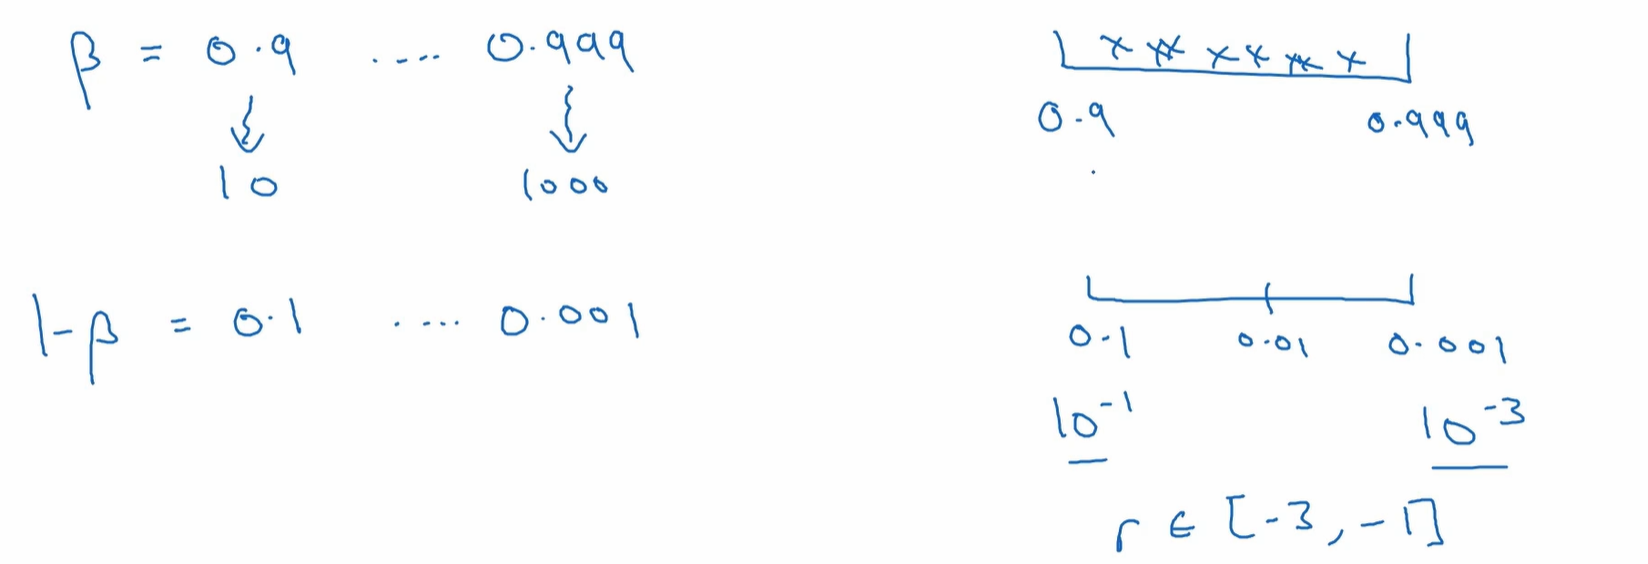 β = 0.9 .... 0.999
10 1000
1-β = 0.1 .... 0.001
0.9 0.999
0.1 0.01 0.001
10⁻¹ 10⁻³
r ∈ [-3, -1]